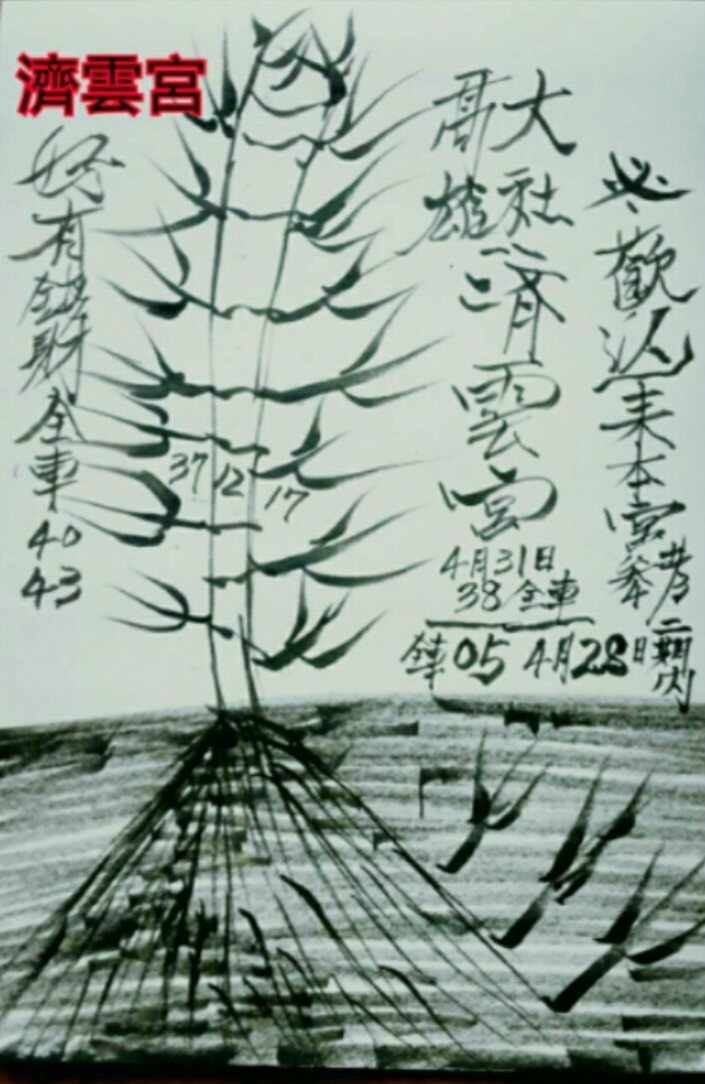 濟雲宮
必歡迎來本宮參考二期內
大社
高雄
濟雲宮
4月31日
38 全車
全車05 4月28日
37 12 17
好有錢財全車
40
43